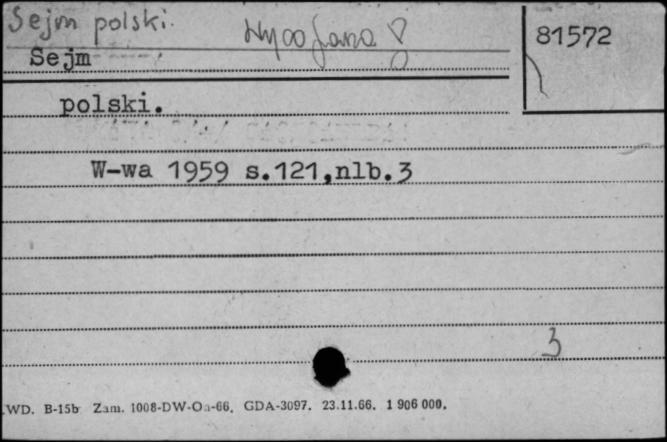 Sejm polski.
81572
Sejm
polski.
W-wa 1959 s.121,nlb.3
3
WD. B-15b Zam. 1008-DW-Oa-66. GDA-3097. 23.11.66. 1 906 000.